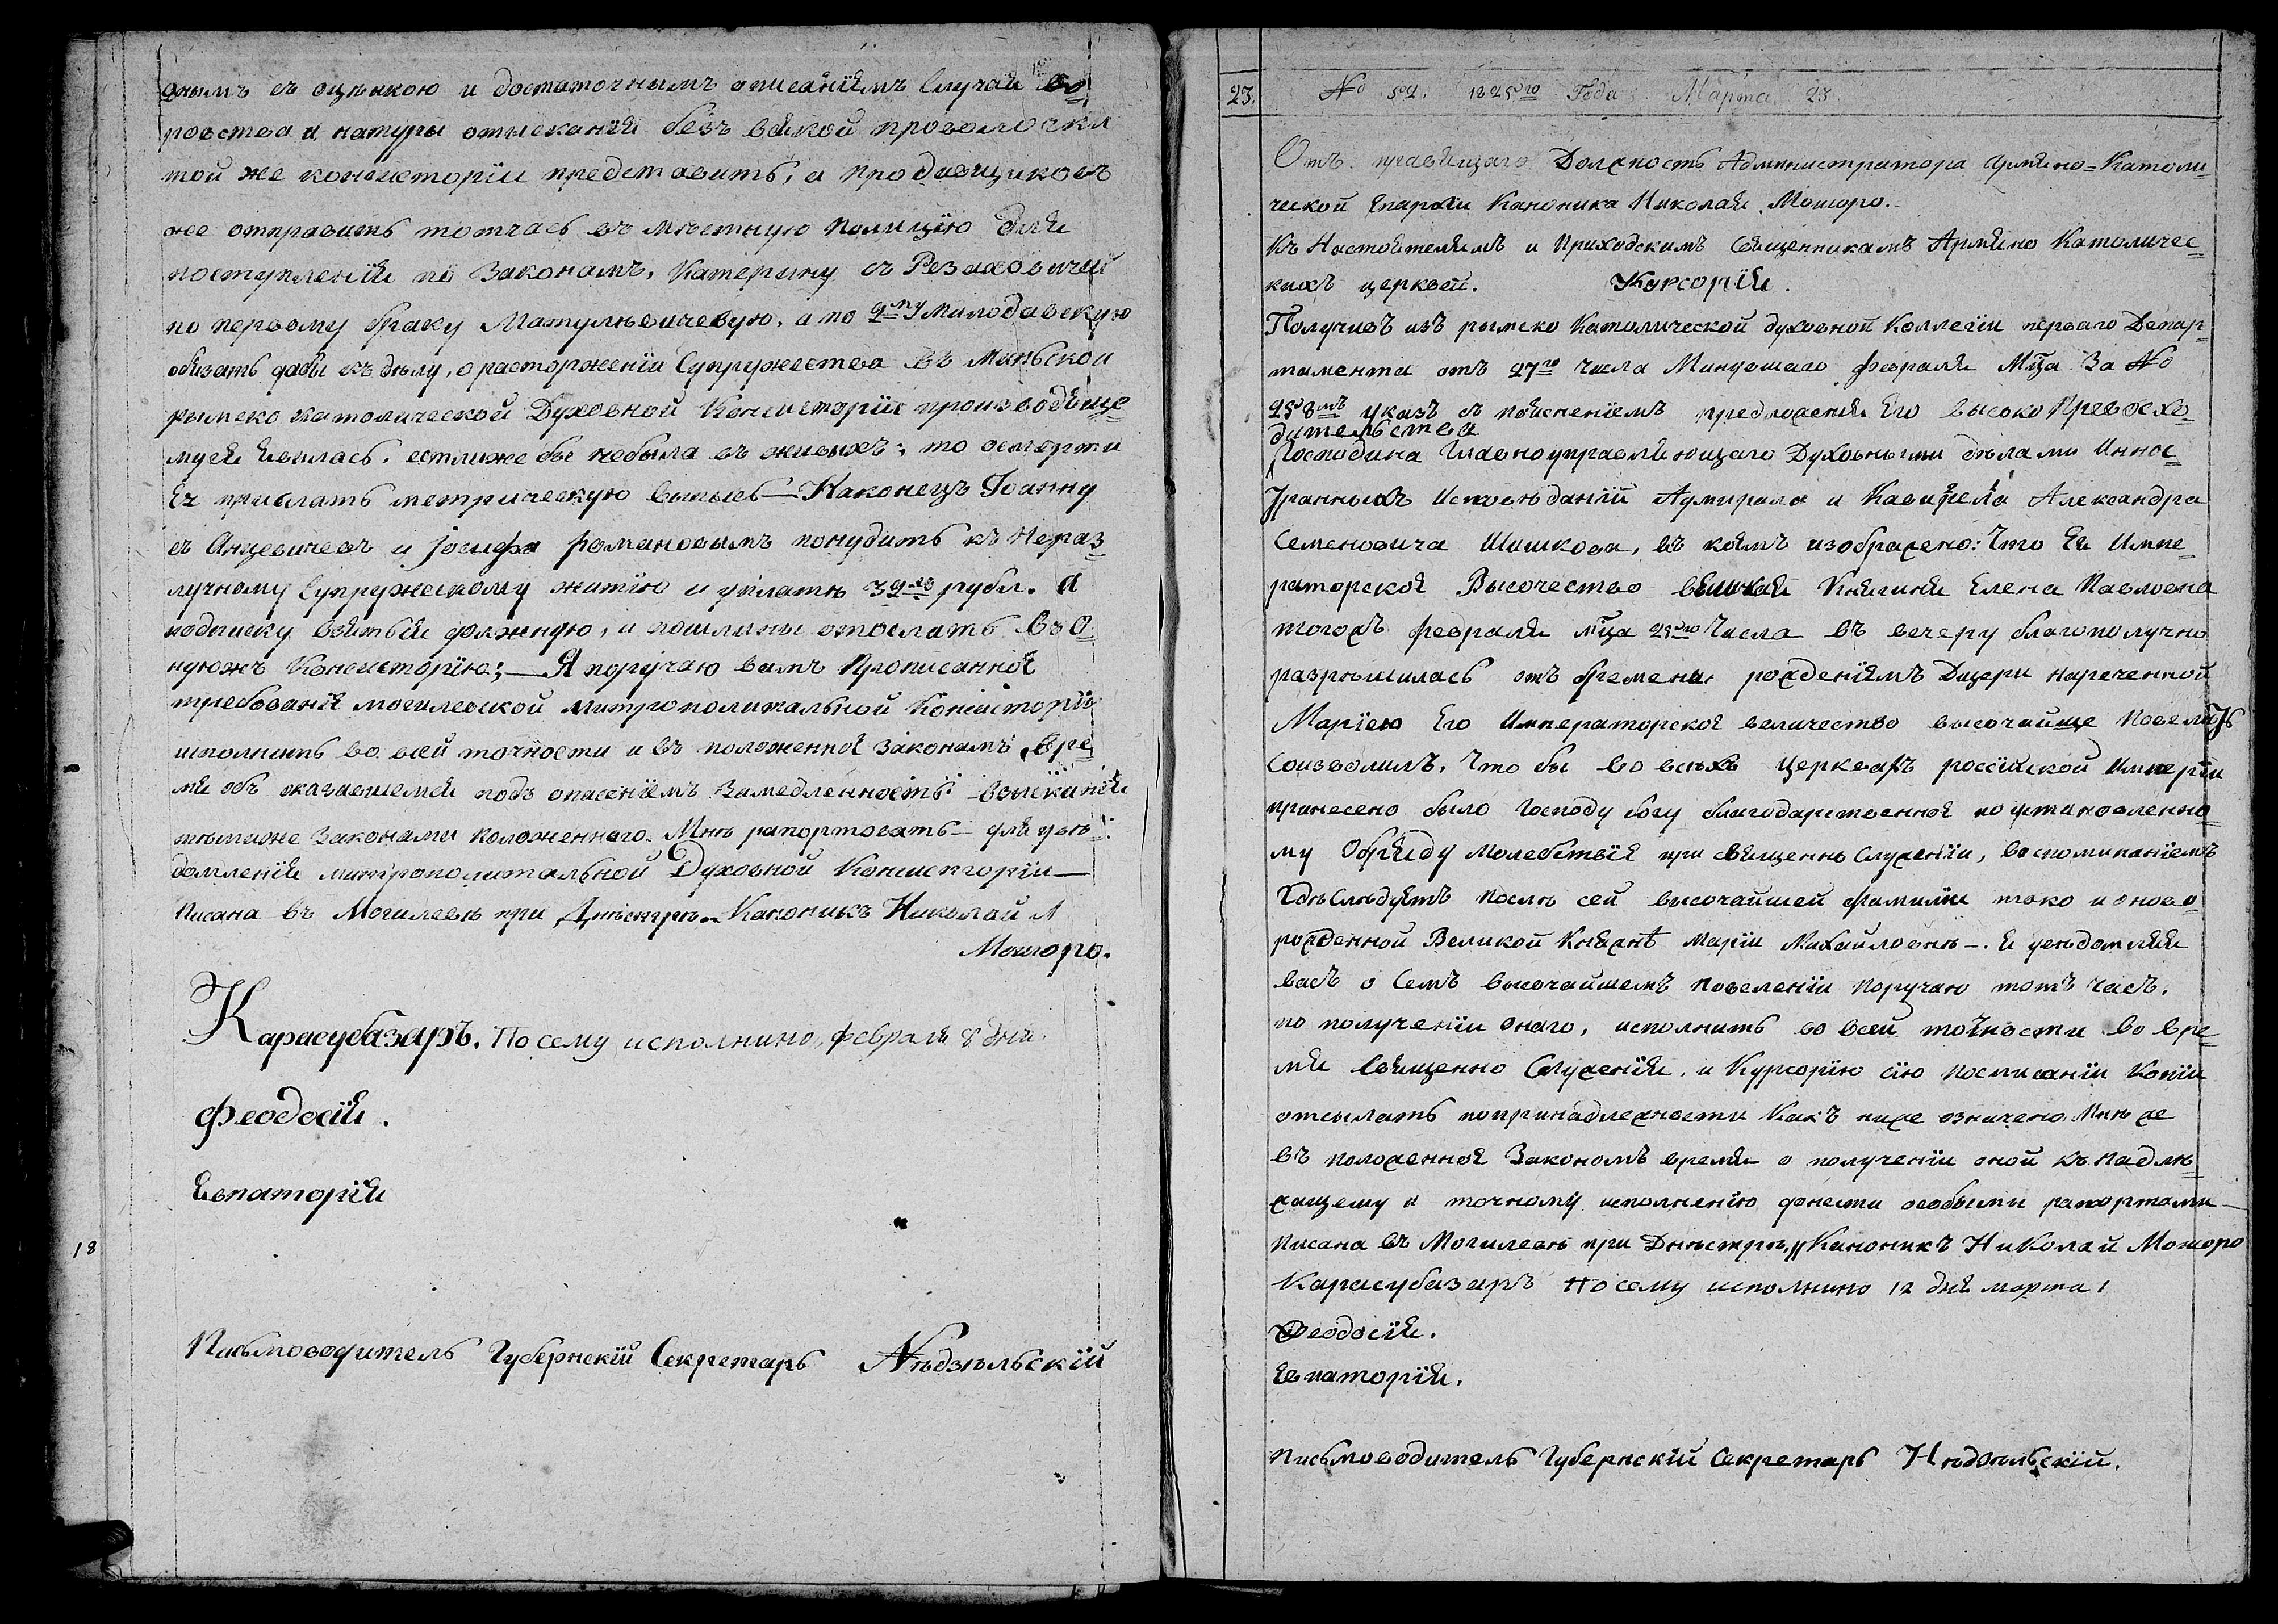 онымъ съ оцѣнкою и достаточнымъ описаніемъ Случая во-
ровства и натуры отысканія безъ всякой проволочки
той же консисторіи представить, а продавщиковъ
же отправить тотчасъ въ мѣстную полицію для
поступленія по Законамъ, Катерину съ Резаховичей
по первому браку Матулѣвичевую, а по 2му Милодавскую
обязать дабы къ дѣлу, о расторженіи Супружества въ Минской
римско католической Духовной Консисторіи производяще-
муся явилась. естлиже бы небыла въ живыхъ; то осмерти
Ея прислать метрическую выпись — Наконецъ Іоанну
съ Анцевичевъ и Іосифа романовымъ понудить къ Нераз-
лучному Супружескому житію и уплатѣ 32хъ рубл. а
подписку взятья должную, и пошлины отослать въ О
нуюжъ Консисторію; — Я поручаю вамъ Прописанное
требованія могилевской митрополитальной Консисторіи
исполнить во всей точности и въ положенное закономъ вре-
мя объ оказавшемся подъ опасеніемъ Замедленность взысканія
тѣмиже Законами положеннаго Мнѣ рапортовать — для увѣ-
домленія митрополитальной Духовной Консисторіи —
Писана въ Могилевѣ при Днѣстрѣ. Каноникъ Николай
Мошоро.
Карасубазаръ. По сему исполнино, февраля 8 дня.
Феодосія.
Евпаторія
18
Письмоводитель Губернскій Секретарь Нѣдзѣльскій
23. № 52. 1825го Года Марта 23
Отъ правящаго Должность Администратора Армяно=Католи-
ческой Епархіи Каноника Николая Мошоро.
Къ Настоятелямъ и Приходскимъ Священникамъ Армяно Католичес-
кихъ церквей. Курсорія.
Получивъ изъ римско Католической духовной Коллегіи перваго Депар-
тамента отъ 27го числа Минувшаго февраля Мца За №
258мъ указъ съ поясненіемъ предложенія Его высоко Превосхо-
дительства
Господина Главноуправляющаго Духовными дѣлами Иннос-
транныхъ Исповѣданій Адмирала и Кавалера Александра
Семеновича Шишкова, въ коемъ изображено: Что Ея Импе-
раторское Высочество великая Княгиня Елена Павловна
тогожъ февраля мца 25го Числа въ вечеру благополучно
разрѣшилась отъ бремени рожденіемъ Дщери нареченной
Маріею Его Императорское величество высочайще Повелѣть
Соизволилъ, Что бы во всѣхъ Церквахъ россійской Имперіи
принесено было Господу богу благодарственное по установленно-
му Обряду молебствіе при священно Служеніи, воспоминаніемъ
Гдѣ Слѣдуетъ Послѣ сей высочайшей фамиліи тако и оново
рожденной Великой Княжнѣ Маріи Михайловнѣ —. Я увѣдомляя
васъ о Семъ высочайшемъ повеленіи Поручаю тотъ часъ,
по полученіи онаго, исполнить во всей точности во вре-
мя Священно Служенія, и Курсорію сію посписаніи Копіи
отсылать попринадлежности Какъ ниже означено. Мнѣ же
въ положенное Закономъ время о полученіи оной къ надлѣ-
жащему и точному исполненію донести особыми рапортами —
Писана въ Могилевѣ при Днѣстрѣ, Каноникъ Николай Мошоро
Карасубазаръ По сему исполнино 12 дня марта
Феодосія.
Евпаторія.
Письмоводитель Губернскій Секретарь Нѣдзѣльскій.